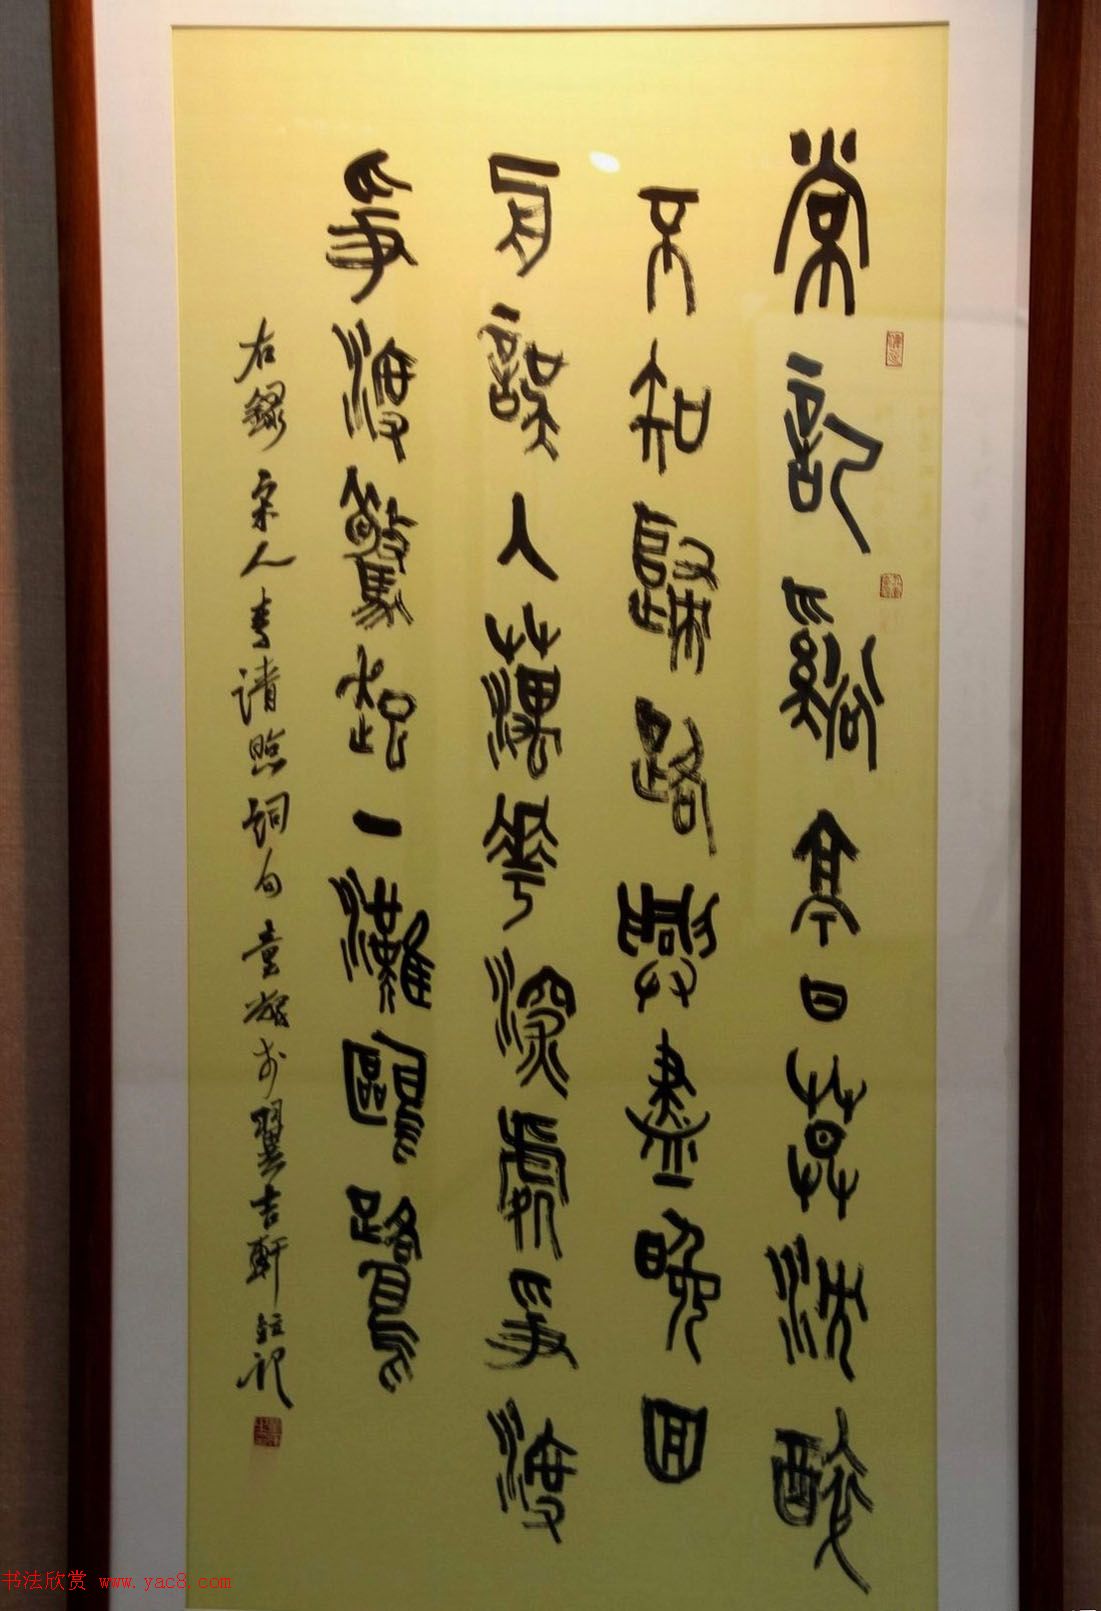 常記谿亭日莫沈醉
不知歸路興盡晚回
舟誤入藕華深處爭渡
爭渡驚起一灘鷗鷺
右錄宋人李清照詞句童於翼吉軒並記
书法欣赏 www.yac8.com